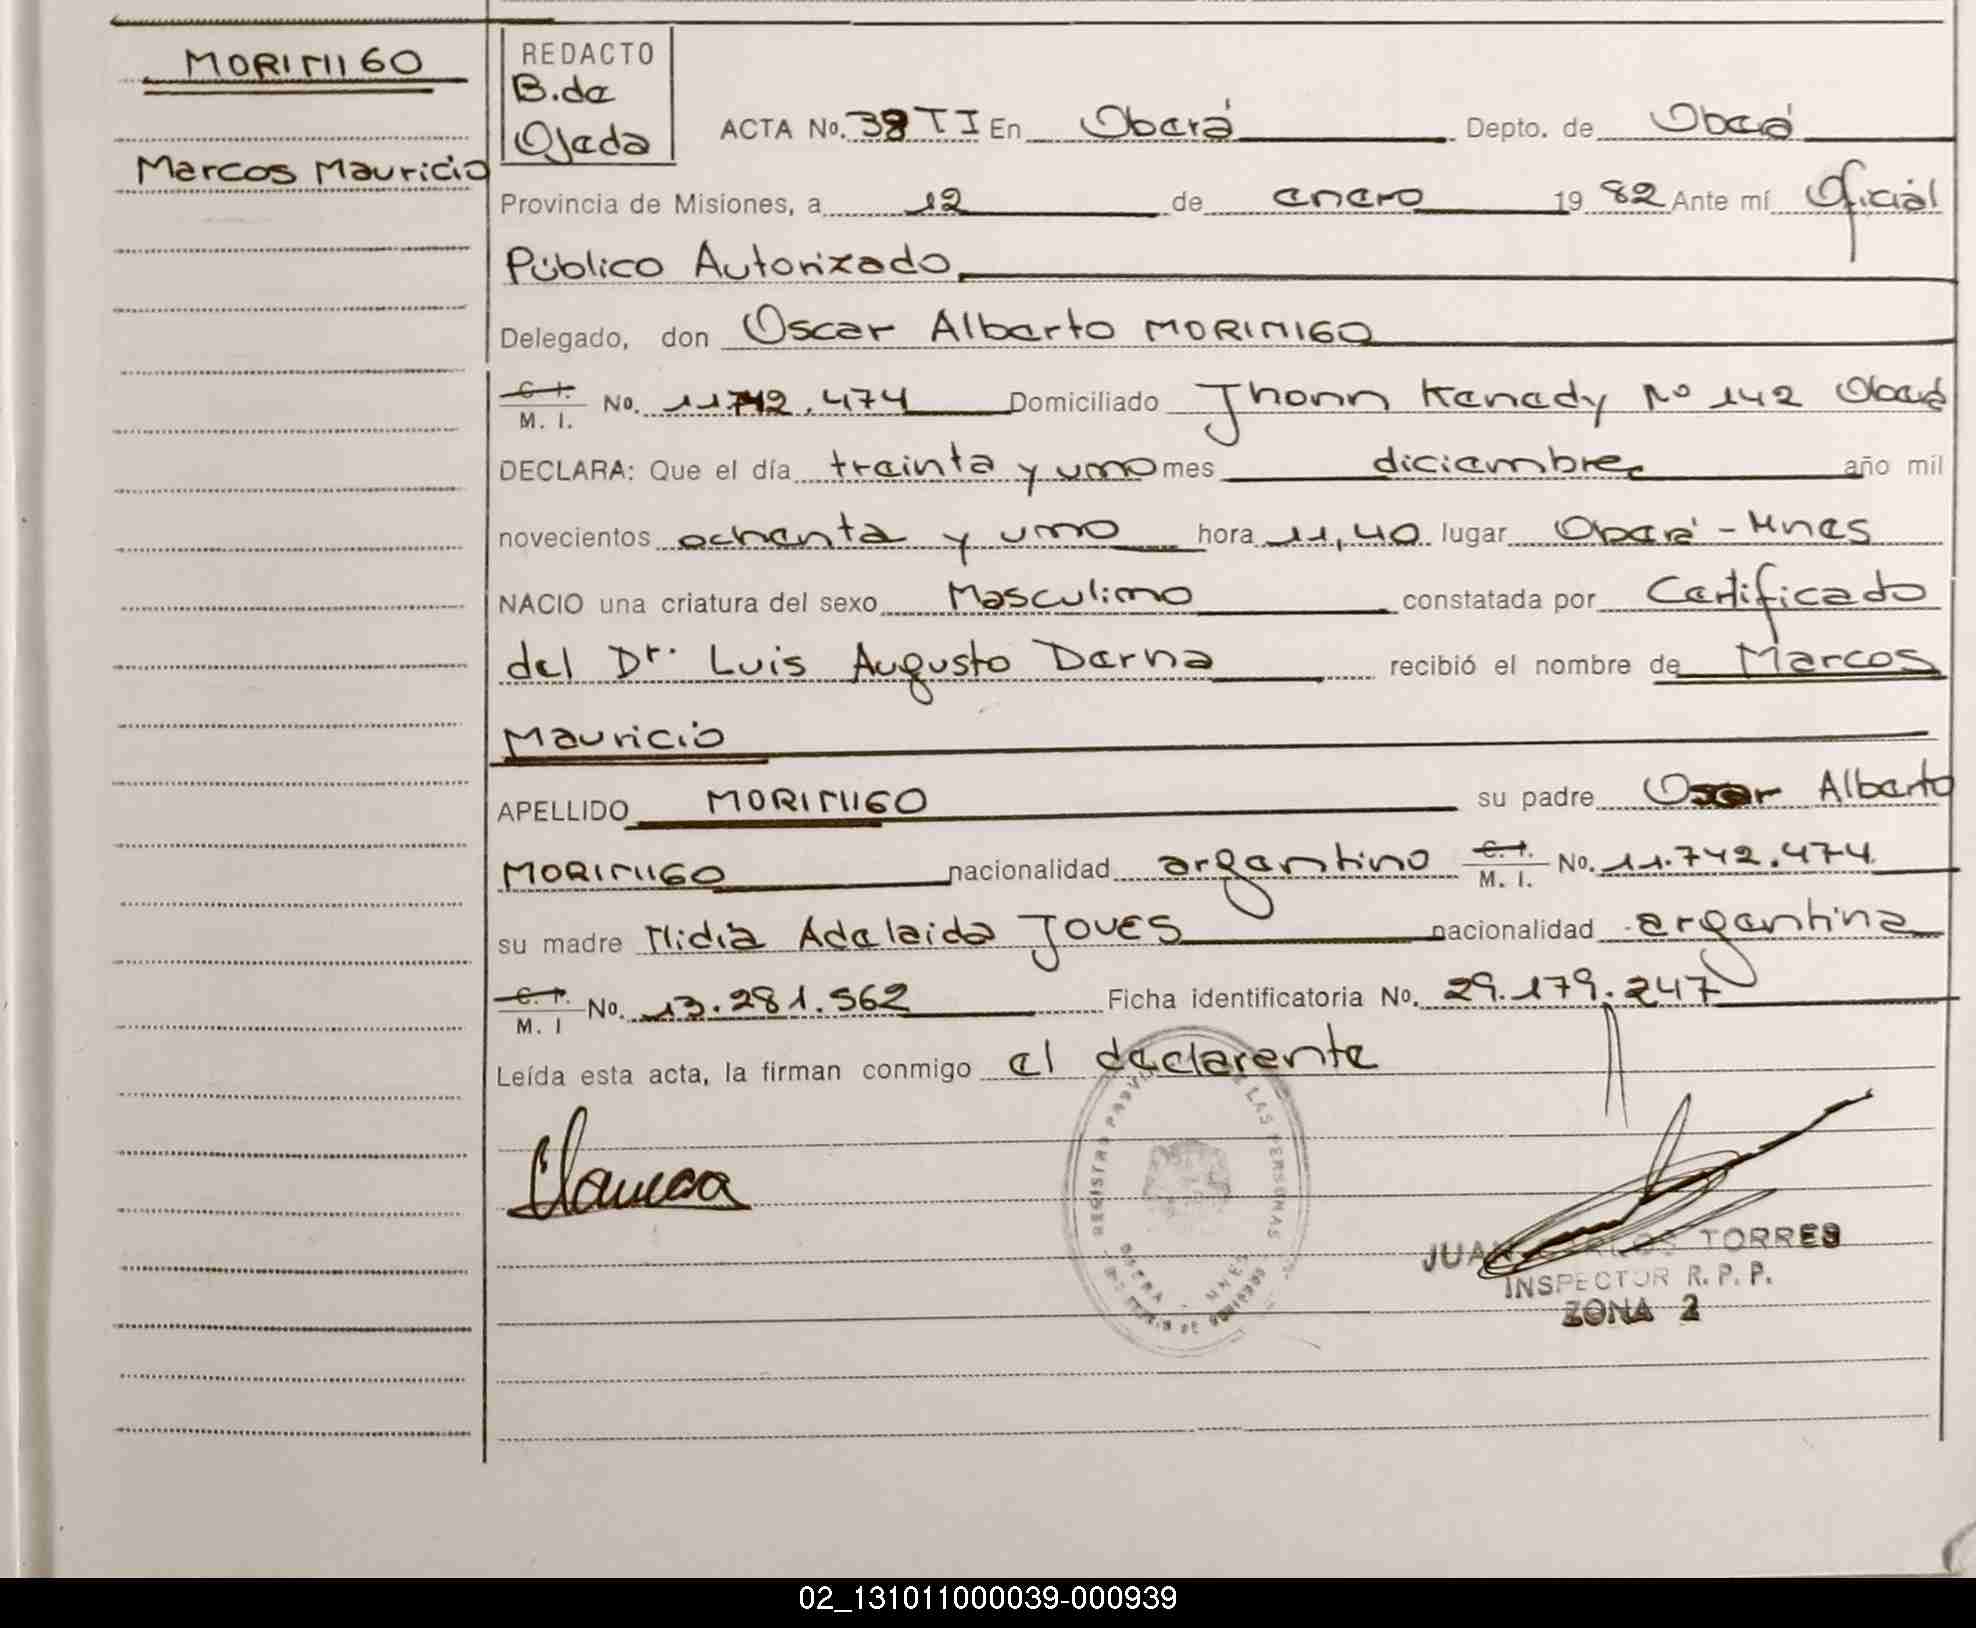 MORINIGO
Marcos Mauricio
REDACTO
B.de
Ojeda
ACTA No. 38 T I En Oberá Depto. de Oberá
Provincia de Misiones, a 12 de enero 1982 Ante mí Oficial
Público Autorizado
Delegado, don Oscar Alberto MORINIGO
C. I. M. I. No. 11.742.474 Domiciliado Jhonn Kenedy Nº 142 Oberá
DECLARA: Que el día treinta y uno mes diciembre año mil
novecientos ochenta y uno hora 11,40 lugar Oberá - Mnes
NACIO una criatura del sexo Masculino constatada por Certificado
del Dr. Luis Augusto Derna recibió el nombre de Marcos
Mauricio
APELLIDO MORINIGO su padre Oscar Alberto
MORINIGO nacionalidad argentino C. I. M. I. No. 11.742.474
su madre Nidia Adelaida Joves nacionalidad argentina
C. I. M. I No. 13.281.562 Ficha identificatoria No. 29.179.247
Leída esta acta, la firman conmigo el declarente
REGISTRO PROV LAS PERSONAS
OBERA - MNES
JUAN CARLOS TORRES
INSPECTOR R. P. P.
ZONA 2
02_131011000039-000939